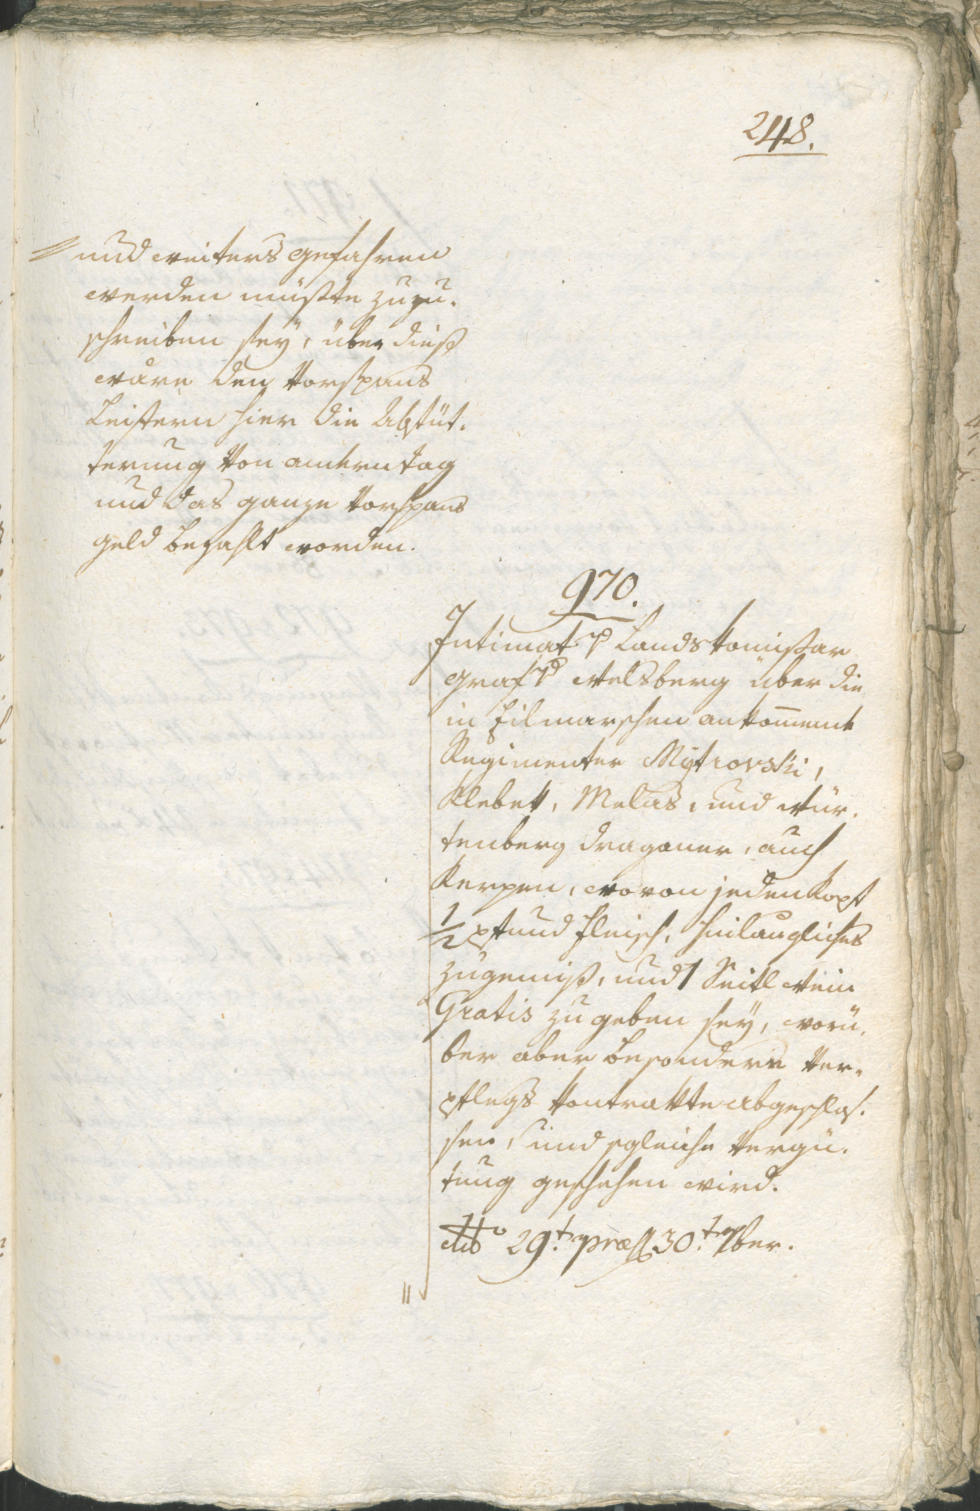 248.
und weiters gefahren
werden müste zuzu¬
schreiben seÿ, über dieß
wäre den Vorspans
Leistern hier die Abfüt¬
terung von andern tag
und das ganze Vorspans
geld bezahlt worden.
970.
Intimat Landskomißar
Graf v Welsberg über die
in Eilmarschen ankom̄ende
Regimenter Mytrovski,
Klebek, Melas, und Wür¬
tenberg Dragoner, auch
Kerpen, wovon jeden Kopf
1/2 Pfund Fleisch, hinlängliches
Zugemüß, und 1 Seitl Wein
Gratis zu geben seÿ, worü¬
ber aber besondere Ver¬
pflegs Kontrakte abgeschlos¬
sen, und gleiche Vergü¬
tung geschehen wird.
dto 29t. præs 30t. 7ber.